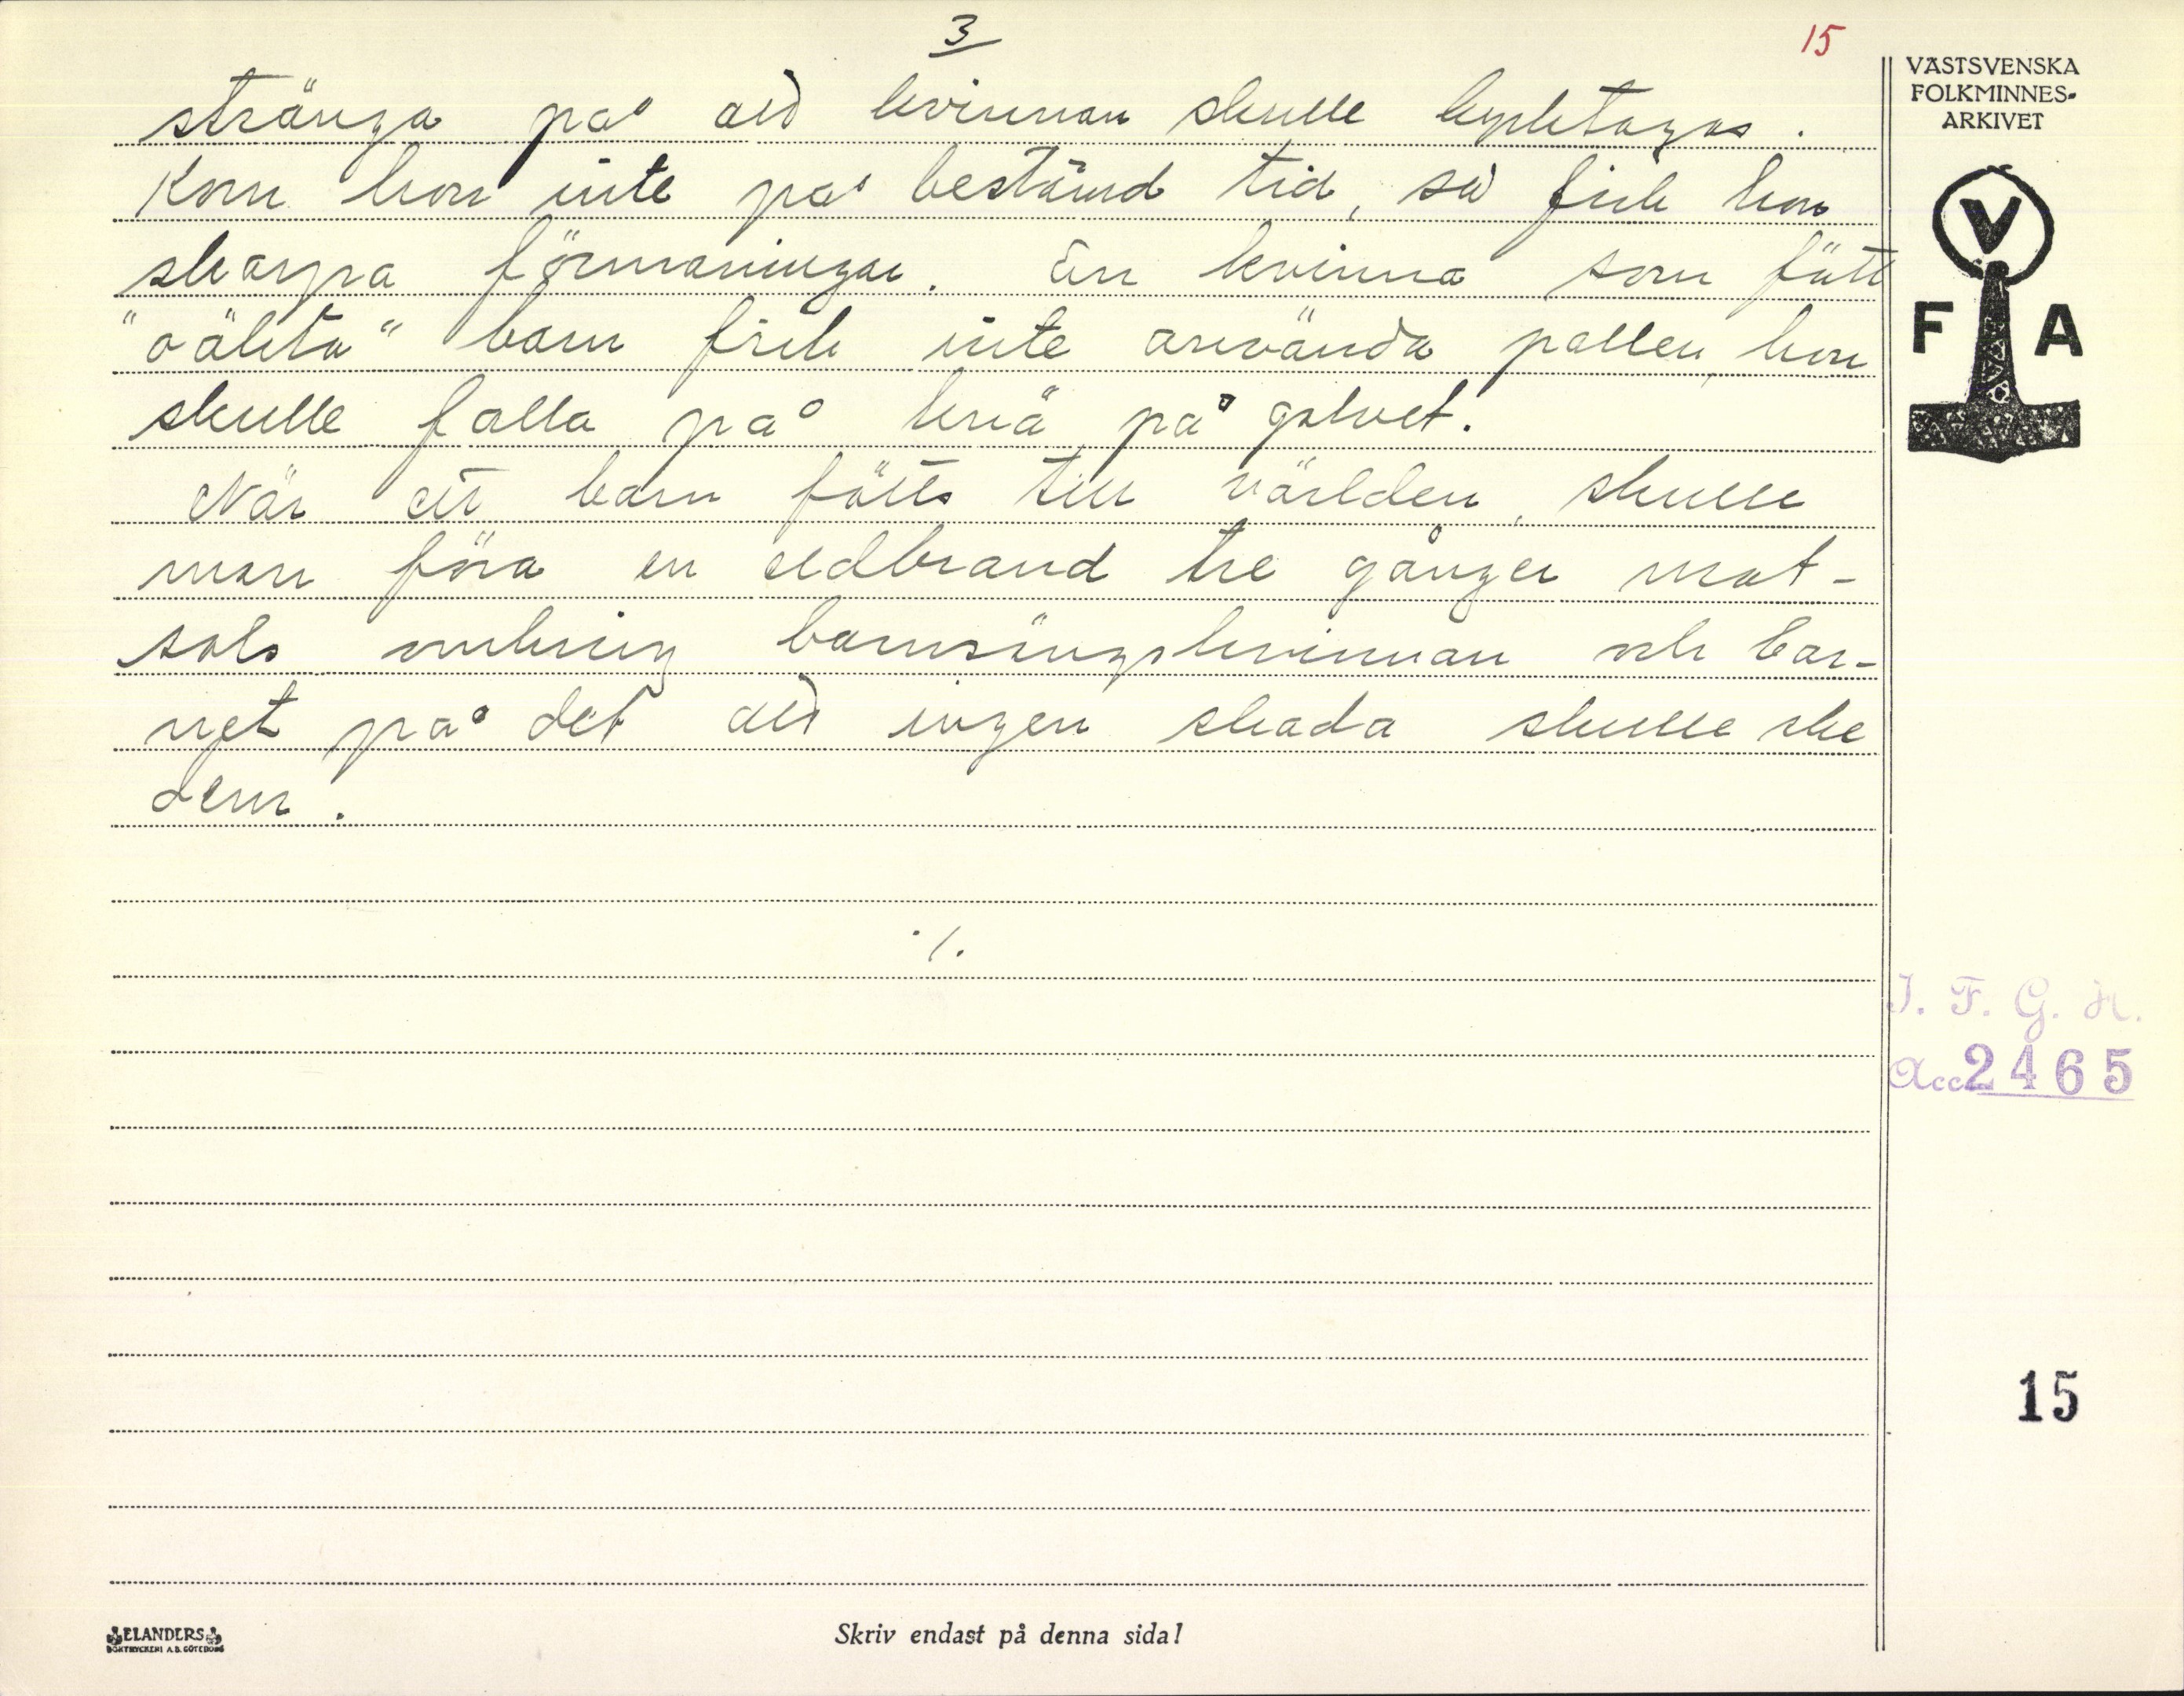 3
15
stränga på att kvinnan skulle kyrktagas.
Kom hon inte på bestämd tid, så fick hon
skarpa förmaningar. En kvinna som fått
"oäkta" barn fick inte använda pallen, hon
skulle falla på knä på golvet.
När ett barn fötts till världen, skulle
man föra en eldbrand tre gånger mot-
sols omkring barnsängskvinnan och bar-
net på det att ingen skada skulle ske
dem.
./.
VÄSTSVENSKA
FOLKMINNES-
ARKIVET
V
F A
I. F. G. H.
Acc 2465
15
ELANDERS
BOKTRYCKERI A.B. GÖTEBORG
Skriv endast på denna sida!